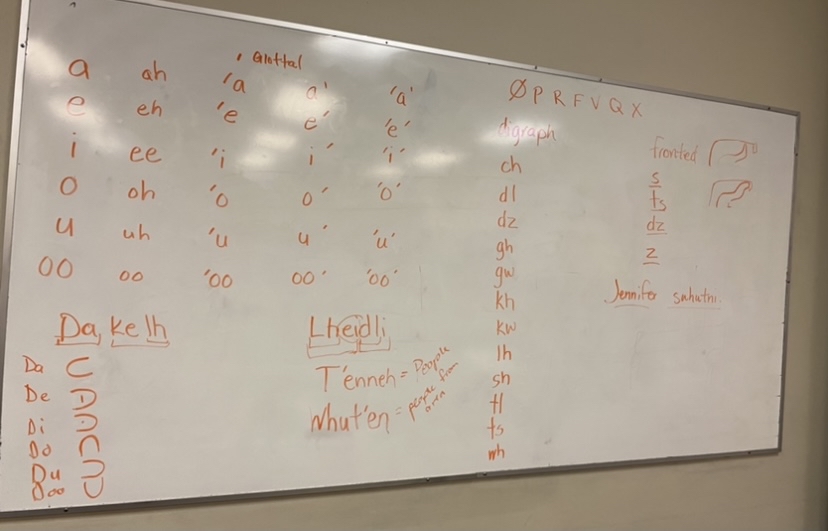 ' Glottal
a ah 'a a' 'a'
e eh 'e e' 'e'
i ee 'i i' 'i'
o oh 'o o' 'o'
u uh 'u u' 'u'
oo oo 'oo oo' 'oo'
Dakelh
Da ᑕ
De
Di
Do
Du
Doo
Lheidli
T'enneh = People
Whut'en = people from area
Ø P R F V Q X
digraph
ch
dl
dz
gh
gw
kh
kw
lh
sh
tl
ts
wh
fronted
s
ts
dz
z
Jennifer